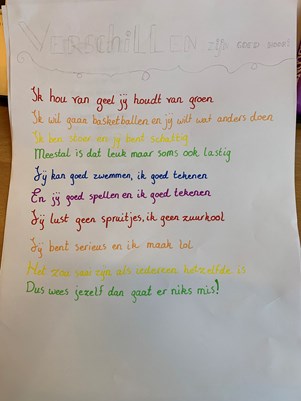 Verschillen zijn goed voor!
Ik hou van geel jij houdt van groen
Ik wil gaan basketballen en jij wilt wat anders doen
Ik ben stoer en jij bent schattig
Meestal is dat leuk maar soms ook lastig
Jij kan goed zwemmen, ik goed tekenen
En jij goed spellen en ik goed tekenen
Jij lust geen spruitjes, ik geen zuurkool
Jij bent serieus en ik maak lol
Het zou saai zijn als iedereen hetzelfde is
Dus wees jezelf dan gaat er niks mis!